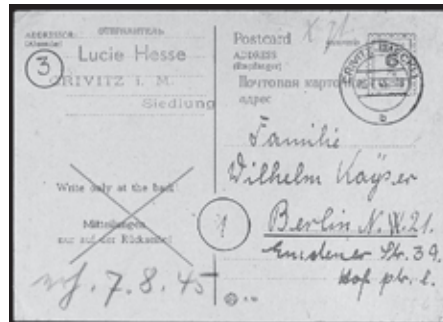 ADDRESSER
(Absender)
ОТПРАВИТЕЛЬ
3
Lucie Hesse
CRIVITZ i. M.
Siedlung
Write only at the back!
Mitteilungen
nur auf der Rückseite!
7.8.45
Postcard
ADDRESS
(Empfänger)
Почтовая карточка
адрес
CRIVITZ (MECKL)
b
Familie
Wilhelm Kayser
1
Berlin N.W.21.
Emdener Str. 39.
Hof ptr. l.